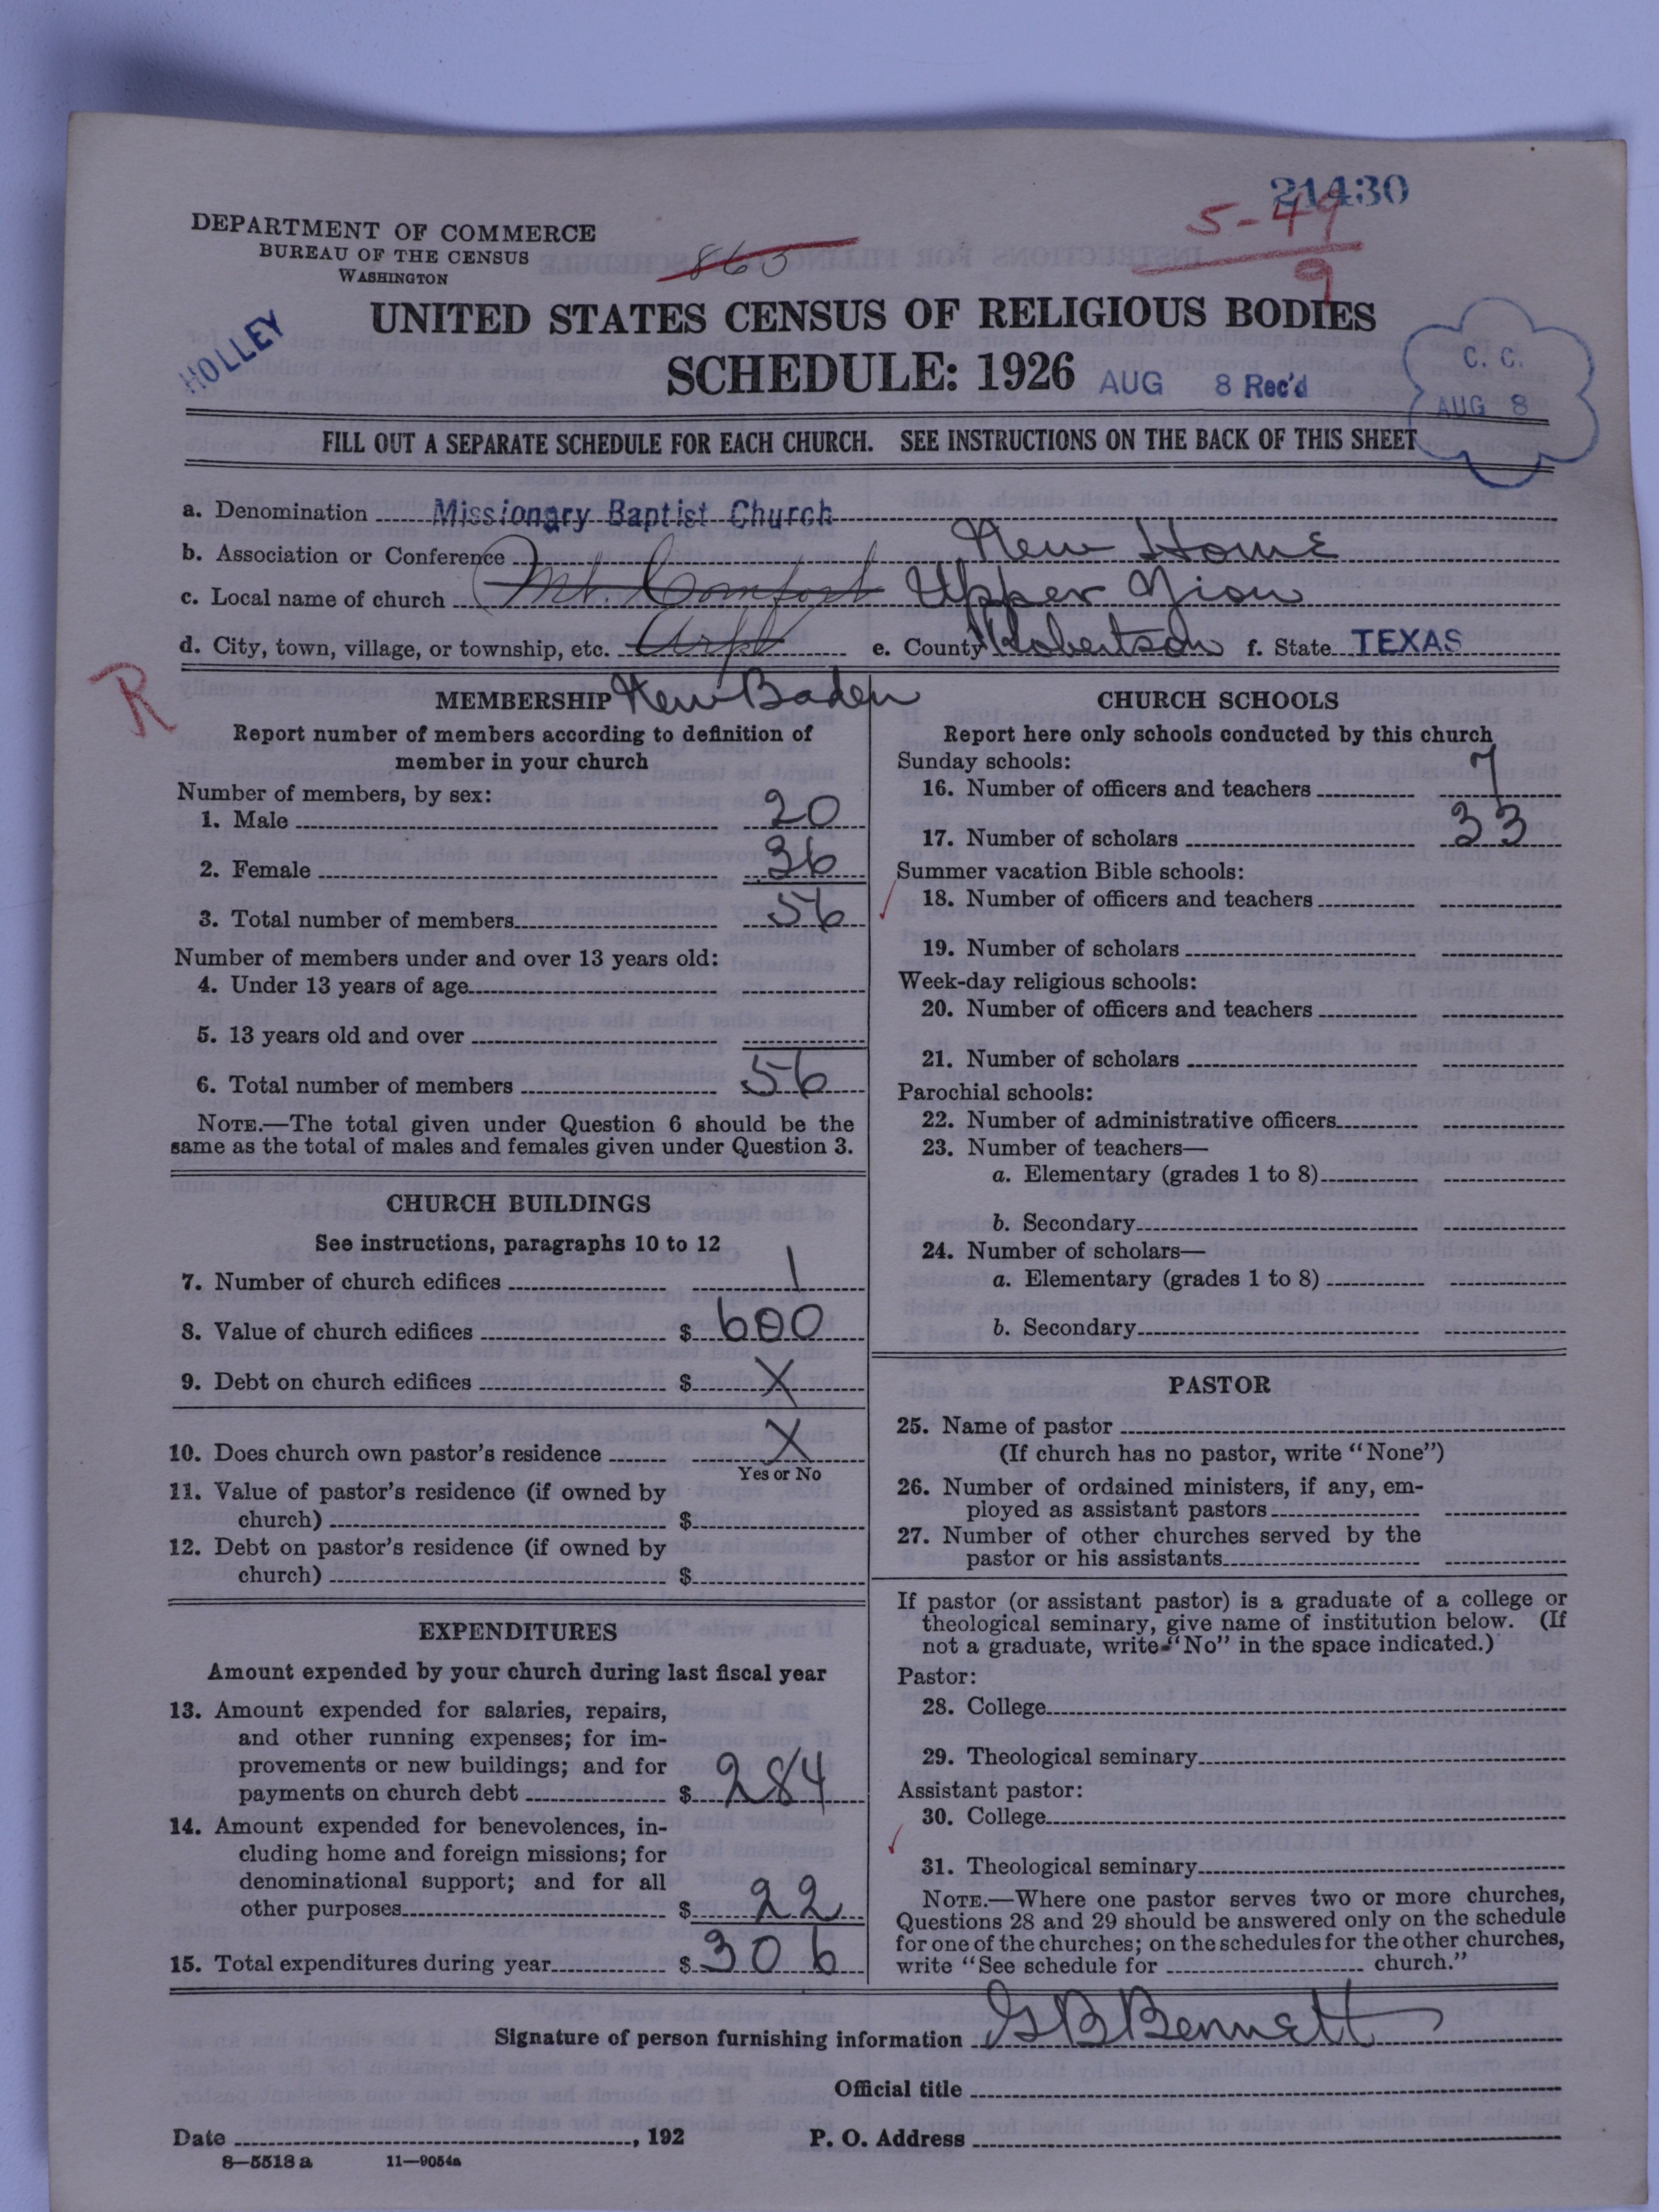 21430
5-49
9
DEPARTMENT OF COMMERCE
BUREAU OF THE CENSUS
WASHINGTON
863
UNITED STATES CENSUS OF RELIGIOUS BODIES
HOLLEY
SCHEDULE: 1926 AUG 8 Rec'd
C. C.
AUG 8
FILL OUT A SEPARATE SCHEDULE FOR EACH CHURCH. SEE INSTRUCTIONS ON THE BACK OF THIS SHEET
a. Denomination Missionary Baptist Church
b. Association or Conference New Home
c. Local name of church Mt. Comfort Upper Zion
d. City, town, village, or township, etc. Arp e. County Robertson f. State TEXAS
R
MEMBERSHIP New Baden
Report number of members according to definition of
member in your church
Number of members, by sex:
1. Male 20
2. Female 36
3. Total number of members 56
Number of members under and over 13 years old:
4. Under 13 years of age
5. 13 years old and over
6. Total number of members 56
NOTE.—The total given under Question 6 should be the
same as the total of males and females given under Question 3.
CHURCH BUILDINGS
See instructions, paragraphs 10 to 12
7. Number of church edifices 1
8. Value of church edifices $ 600
9. Debt on church edifices $ X
10. Does church own pastor's residence X
Yes or No
11. Value of pastor's residence (if owned by
church) $
12. Debt on pastor's residence (if owned by
church) $
EXPENDITURES
Amount expended by your church during last fiscal year
13. Amount expended for salaries, repairs,
and other running expenses; for im-
provements or new buildings; and for
payments on church debt $ 284
14. Amount expended for benevolences, in-
cluding home and foreign missions; for
denominational support; and for all
other purposes $ 22
15. Total expenditures during year $ 306
CHURCH SCHOOLS
Report here only schools conducted by this church
Sunday schools:
16. Number of officers and teachers 7
17. Number of scholars 33
Summer vacation Bible schools:
18. Number of officers and teachers
19. Number of scholars
Week-day religious schools:
20. Number of officers and teachers
21. Number of scholars
Parochial schools:
22. Number of administrative officers
23. Number of teachers—
a. Elementary (grades 1 to 8)
b. Secondary
24. Number of scholars—
a. Elementary (grades 1 to 8)
b. Secondary
PASTOR
25. Name of pastor
(If church has no pastor, write "None")
26. Number of ordained ministers, if any, em-
ployed as assistant pastors
27. Number of other churches served by the
pastor or his assistants
If pastor (or assistant pastor) is a graduate of a college or
theological seminary, give name of institution below. (If
not a graduate, write "No" in the space indicated.)
Pastor:
28. College
29. Theological seminary
Assistant pastor:
30. College
31. Theological seminary
NOTE.—Where one pastor serves two or more churches,
Questions 28 and 29 should be answered only on the schedule
for one of the churches; on the schedules for the other churches,
write "See schedule for church."
Signature of person furnishing information G B Bennett
Official title
Date , 192 P. O. Address
8—5518 a 11—9054a